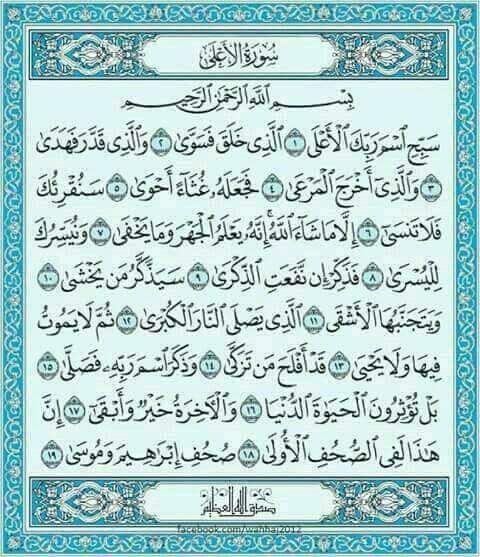 سُورَةُ الأَعْلَى
بِسْمِ اللَّهِ الرَّحْمَٰنِ الرَّحِيمِ
سَبِّحِ اسْمَ رَبِّكَ الْأَعْلَى ١ الَّذِي خَلَقَ فَسَوَّىٰ ٢ وَالَّذِي قَدَّرَ فَهَدَىٰ
٣ وَالَّذِي أَخْرَجَ الْمَرْعَىٰ ٤ فَجَعَلَهُ غُثَاءً أَحْوَىٰ ٥ سَنُقْرِئُكَ
فَلَا تَنسَىٰ ٦ إِلَّا مَا شَاءَ اللَّهُ إِنَّهُ يَعْلَمُ الْجَهْرَ وَمَا يَخْفَىٰ ٧ وَنُيَسِّرُكَ
لِلْيُسْرَىٰ ٨ فَذَكِّرْ إِن نَّفَعَتِ الذِّكْرَىٰ ٩ سَيَذَّكَّرُ مَن يَخْشَىٰ ١٠
وَيَتَجَنَّبُهَا الْأَشْقَى ١١ الَّذِي يَصْلَى النَّارَ الْكُبْرَىٰ ١٢ ثُمَّ لَا يَمُوتُ
فِيهَا وَلَا يَحْيَىٰ ١٣ قَدْ أَفْلَحَ مَن تَزَكَّىٰ ١٤ وَذَكَرَ اسْمَ رَبِّهِ فَصَلَّىٰ ١٥
بَلْ تُؤْثِرُونَ الْحَيَوٰةَ الدُّنْيَا ١٦ وَالْآخِرَةُ خَيْرٌ وَأَبْقَىٰ ١٧ إِنَّ
هَٰذَا لَفِي الصُّحُفِ الْأُولَىٰ ١٨ صُحُفِ إِبْرَاهِيمَ وَمُوسَىٰ ١٩
صدق الله العظيم
facebook.com/wahhaj2012